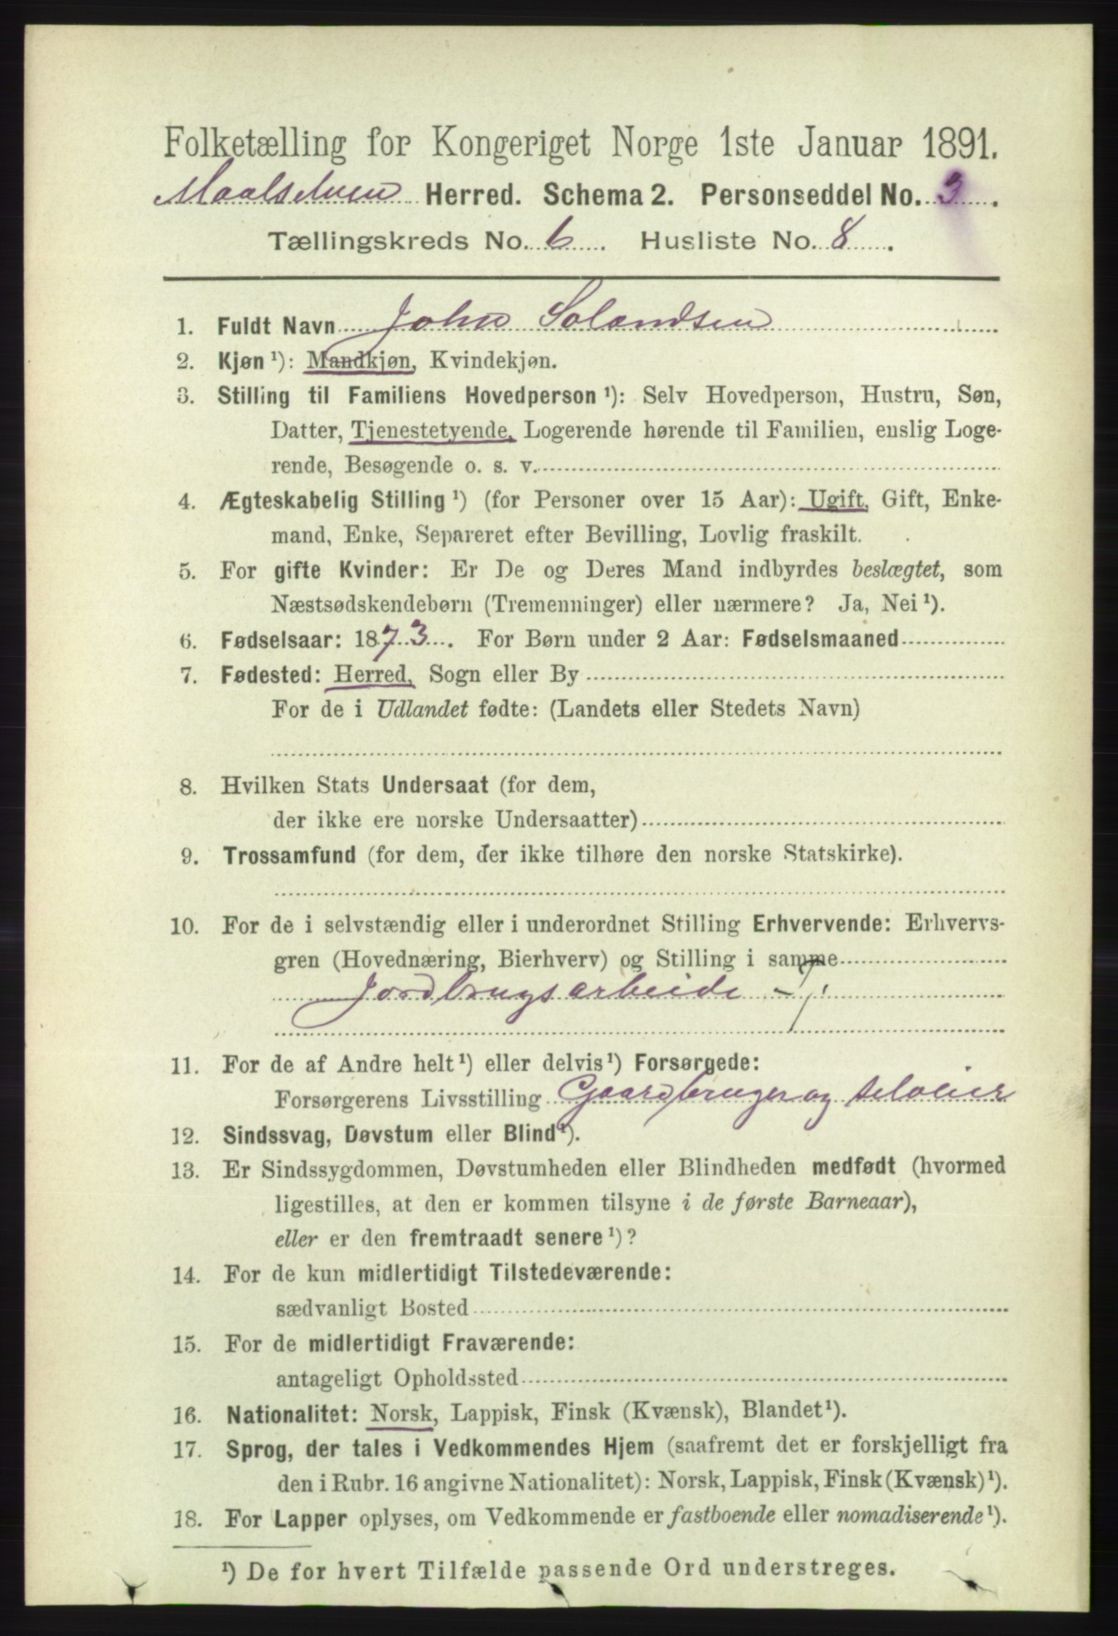 Folketælling for Kongeriget Norge 1ste Januar 1891.
Maalselven Herred. Schema 2. Personseddel No. 3.
Tællingskreds No. 6. Husliste No. 8.
1. Fuldt Navn John Solandsen
2. Kjøn¹): Mandkjøn, Kvindekjøn.
3. Stilling til Familiens Hovedperson¹): Selv Hovedperson, Hustru, Søn,
Datter, Tjenestetyende, Logerende hørende til Familien, enslig Loge-
rende, Besøgende o. s. v.
4. Ægteskabelig Stilling¹) (for Personer over 15 Aar): Ugift, Gift, Enke-
mand, Enke, Separeret efter Bevilling, Lovlig fraskilt.
5. For gifte Kvinder: Er De og Deres Mand indbyrdes beslægtet, som
Næstsødskendebørn (Tremenninger) eller nærmere? Ja, Nei¹).
6. Fødselsaar: 1873. For Børn under 2 Aar: Fødselsmaaned
7. Fødested: Herred, Sogn eller By
For de i Udlandet fødte: (Landets eller Stedets Navn)
8. Hvilken Stats Undersaat (for dem,
der ikke ere norske Undersaatter)
9. Trossamfund (for dem, der ikke tilhøre den norske Statskirke).
10. For de i selvstændig eller i underordnet Stilling Erhvervende: Erhvervs-
gren (Hovednæring, Bierhverv) og Stilling i samme
Jordbrugsarbeide - T.
11. For de af Andre helt¹) eller delvis¹) Forsørgede:
Forsørgerens Livsstilling Gaardbruger og seloeier
12. Sindssvag, Døvstum eller Blind¹).
13. Er Sindssygdommen, Døvstumheden eller Blindheden medfødt (hvormed
ligestilles, at den er kommen tilsyne i de første Barneaar),
eller er den fremtraadt senere¹)?
14. For de kun midlertidigt Tilstedeværende:
sædvanligt Bosted
15. For de midlertidigt Fraværende:
antageligt Opholdssted
16. Nationalitet: Norsk, Lappisk, Finsk (Kvænsk), Blandet¹).
17. Sprog, der tales i Vedkommendes Hjem (saafremt det er forskjelligt fra
den i Rubr. 16 angivne Nationalitet): Norsk, Lappisk, Finsk (Kvænsk)¹).
18. For Lapper oplyses, om Vedkommende er fastboende eller nomadiserende¹).
¹) De for hvert Tilfælde passende Ord understreges.